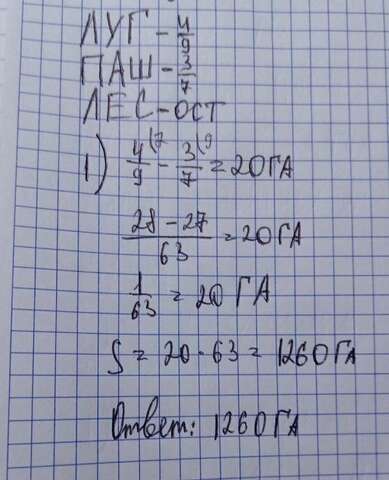 ЛУГ - 4/9
ПАШ - 3/7
ЛЕС - ОСТ
1) 4/9 (7 - 3/7 (9 = 20 ГА
28 - 27 / 63 = 20 ГА
1/63 = 20 ГА
S = 20 · 63 = 1260 ГА
Ответ: 1260 ГА